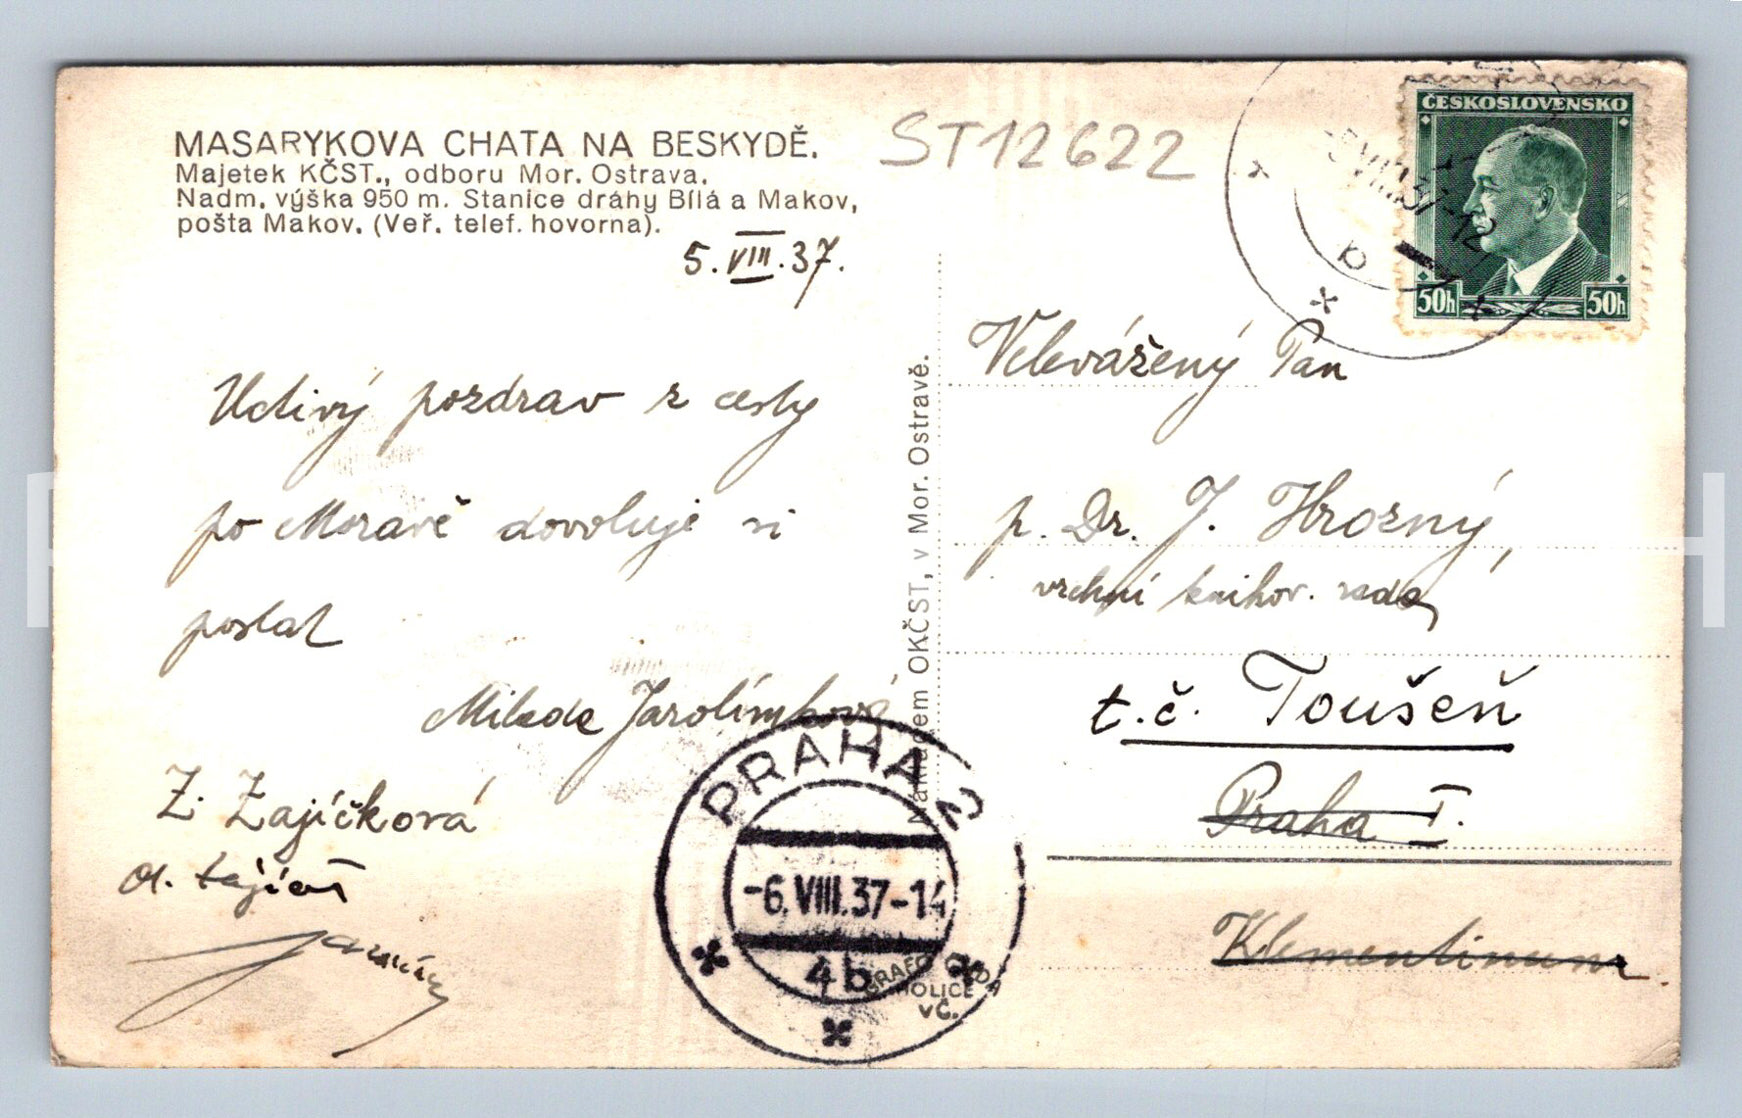 MASARYKOVA CHATA NA BESKYDĚ.
Majetek KČST., odboru Mor. Ostrava.
Nadm. výška 950 m. Stanice dráhy Bílá a Makov,
pošta Makov. (Veř. telef. hovorna).
5.VIII.37.
ST12622
Uctivý pozdrav z cesty
po Moravě dovoluje si
poslat
Milada Jarolímková
Z. Zajíčková
Nákladem OKČST, v Mor. Ostravě.
ČESKOSLOVENSKO
50h 50h
VIII.37-12
b
Velevážený Pan
p. Dr. J. Hrozný,
vrchní knihov. rada,
t.č. Toušeň
Praha I.
Klementinum.
PRAHA 2
-6.VIII.37-14
4b
GRAFO ČUDA
HOLICE
VČ.